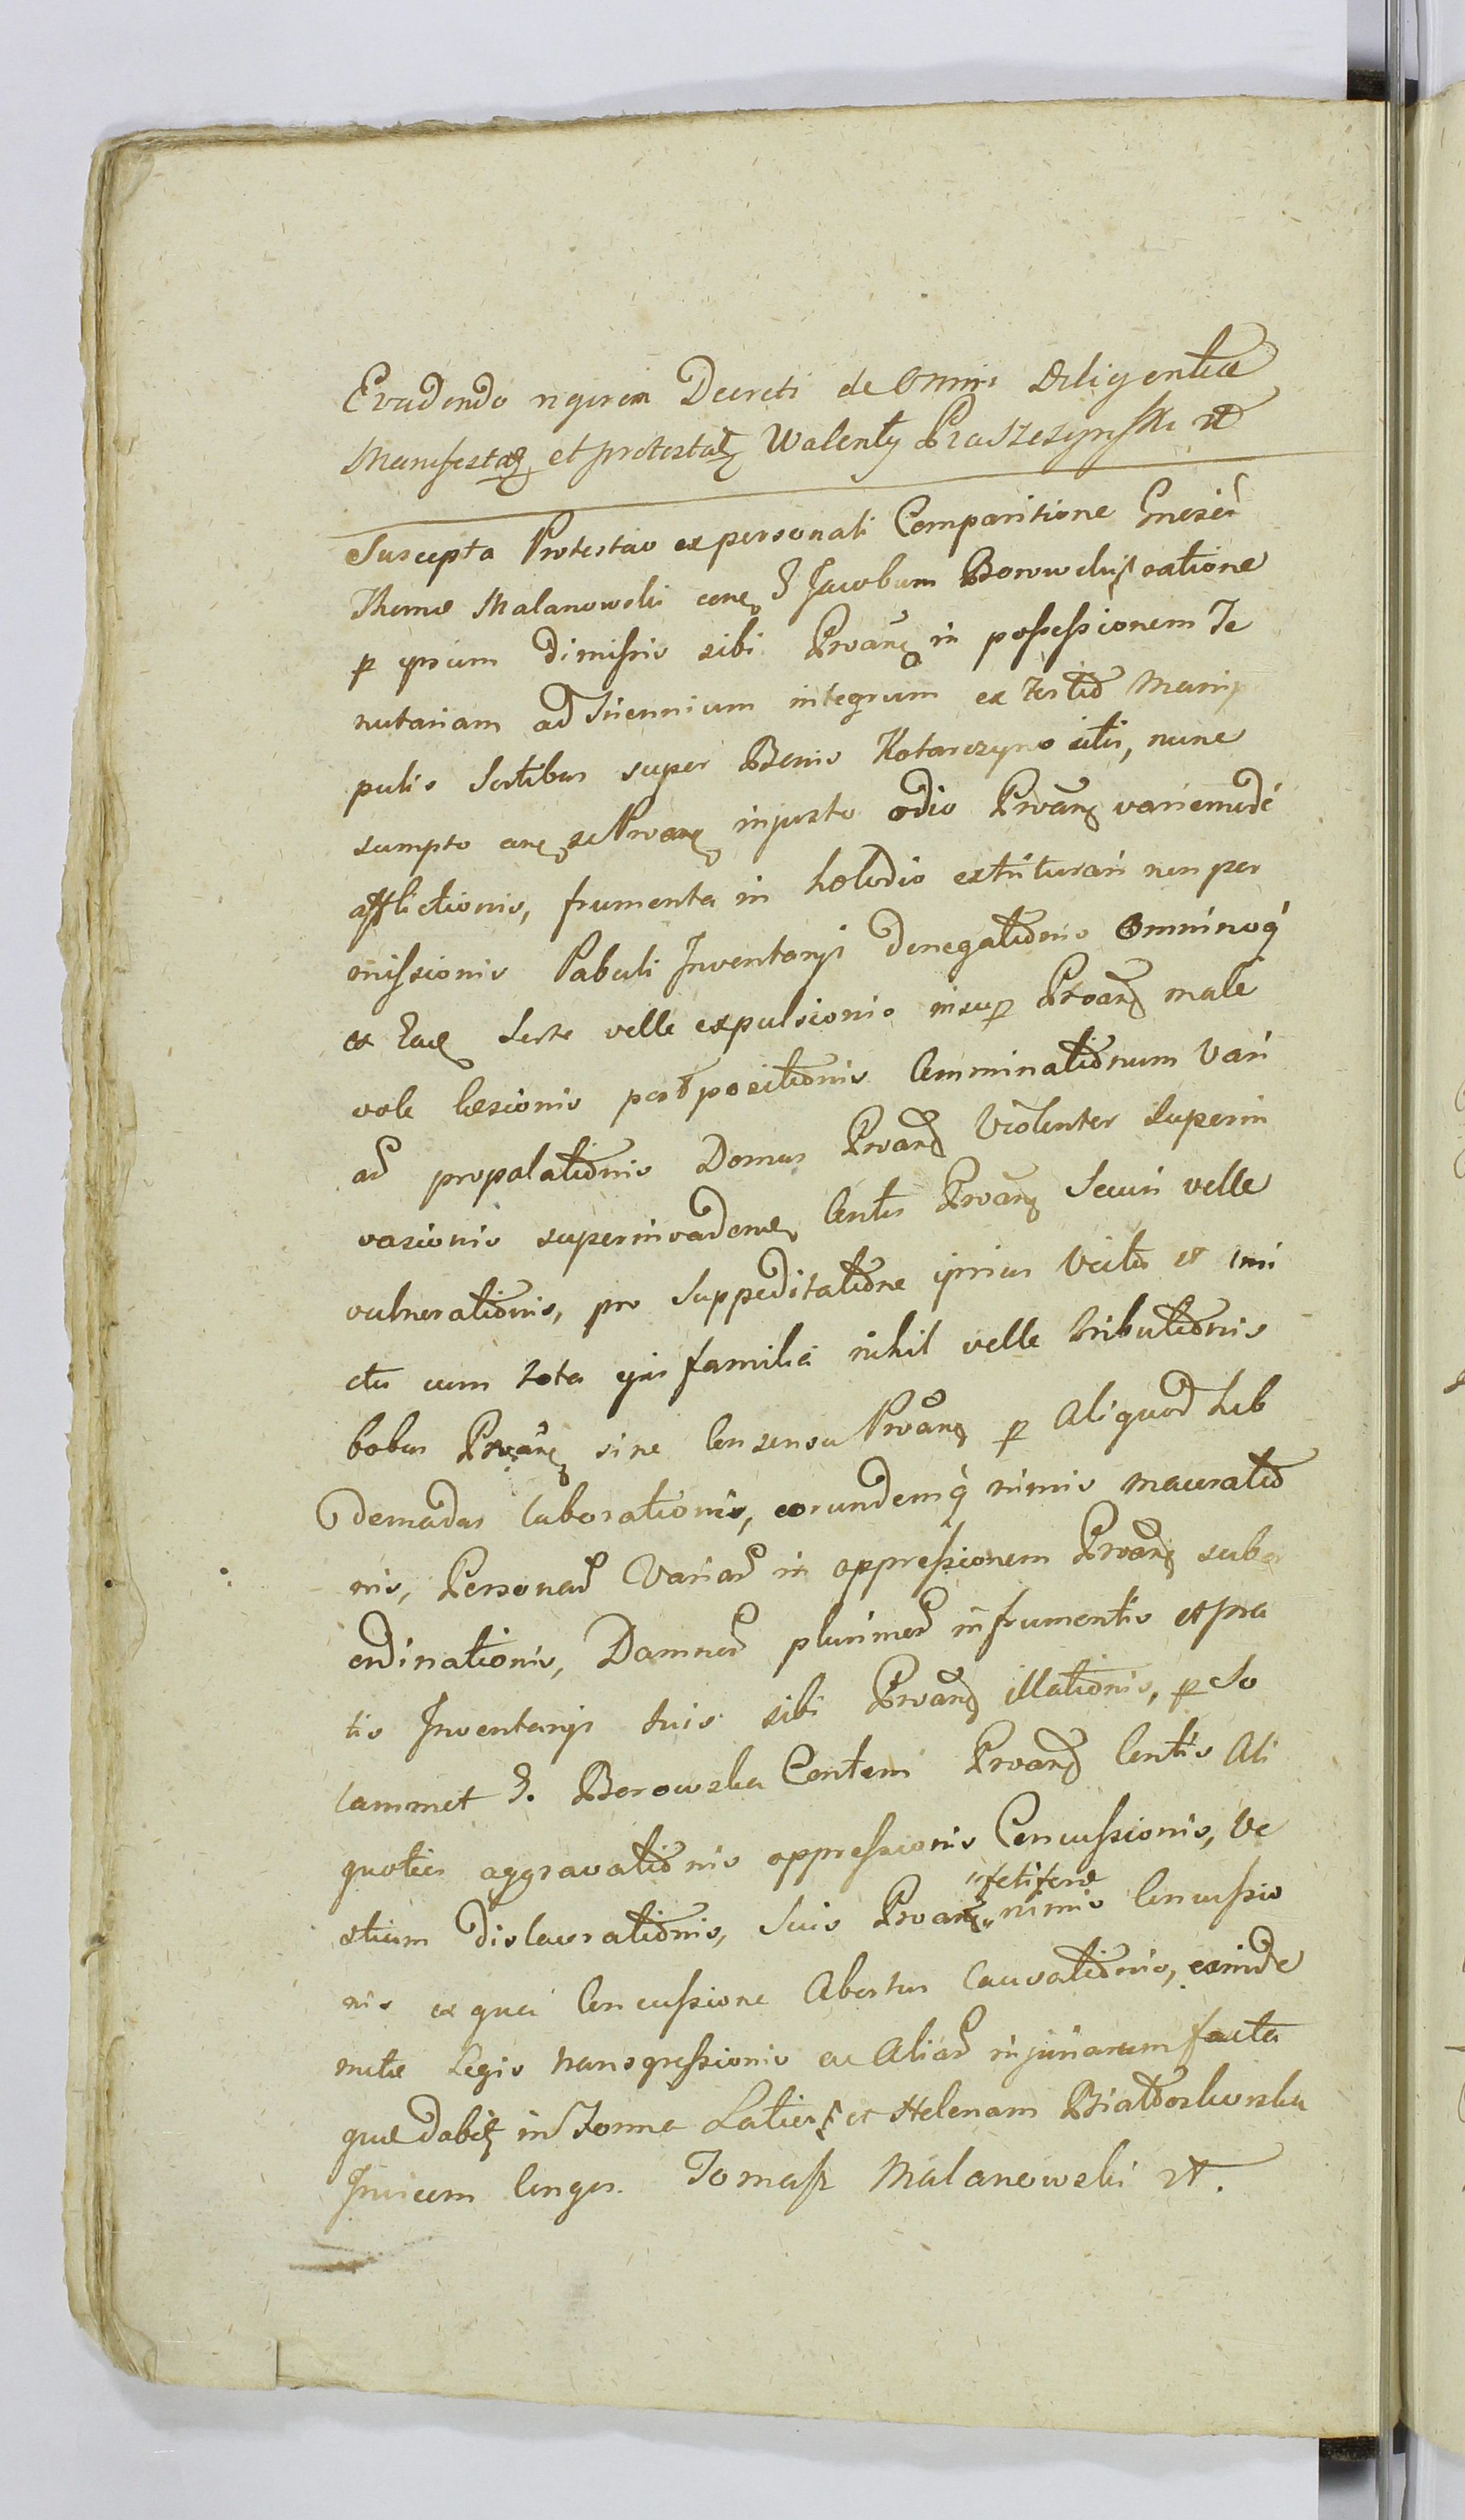 Evadendo rigorem Decreti de omni Diligentia
Manifestat et protestat Walenty Praszczynski
Suscepta Protestao ex personali Comparitione Gnesi
Thomæ Malanowski G Jacobum Borowski ratione
p ipsum dimissis sibi Proan in possessionem Te
nutariam ad Triennium integrum ex tertio Manip
pulis Sortibus super Bonis Kotarczyno sitis, nunc
sumpto injusto odio Proan variemode
afflictionis, frumenta in horreis extriturari non per
missionis Pabuli Inventarys denegationis omninoq
ex Sorte velle expulsionis insup Proan male
vole læsionis postpositionis Comminationum Vari
ar propalationis Domus Proan Violenter Superin
vasionis superinvaden Contis Proan Securi velle
vulnerationis, pro Suppeditatione ipsius Victu et ami
ctu cum tota ejus familia nihil velle tributionis
bobus Proan sine Consensu Proan p Aliquod heb
domadas laborationis, eorundemq nimis maceratio
nis, Personar Variar in oppressionem Proan subor
dinationis, Damnor plurimor in frumentis et pra
tis Inventarys suis sibi Proan illationis, p So
cammet G. Borowska Contem Proan Contis Ali
quoties aggravationis oppressionis Concussionis, Ve
stium dislacerationis, Suis Proan "nimis Concussio
"fetiferæ
nis ex qua Concussione Abortus Causationis, exinde
mitæ Legis transgressionis ac Aliar injuriarum facta
quæ dabit in Forma Latiori et Helenam Białoskorska
Invicem Conges. Tomasz Malanowski